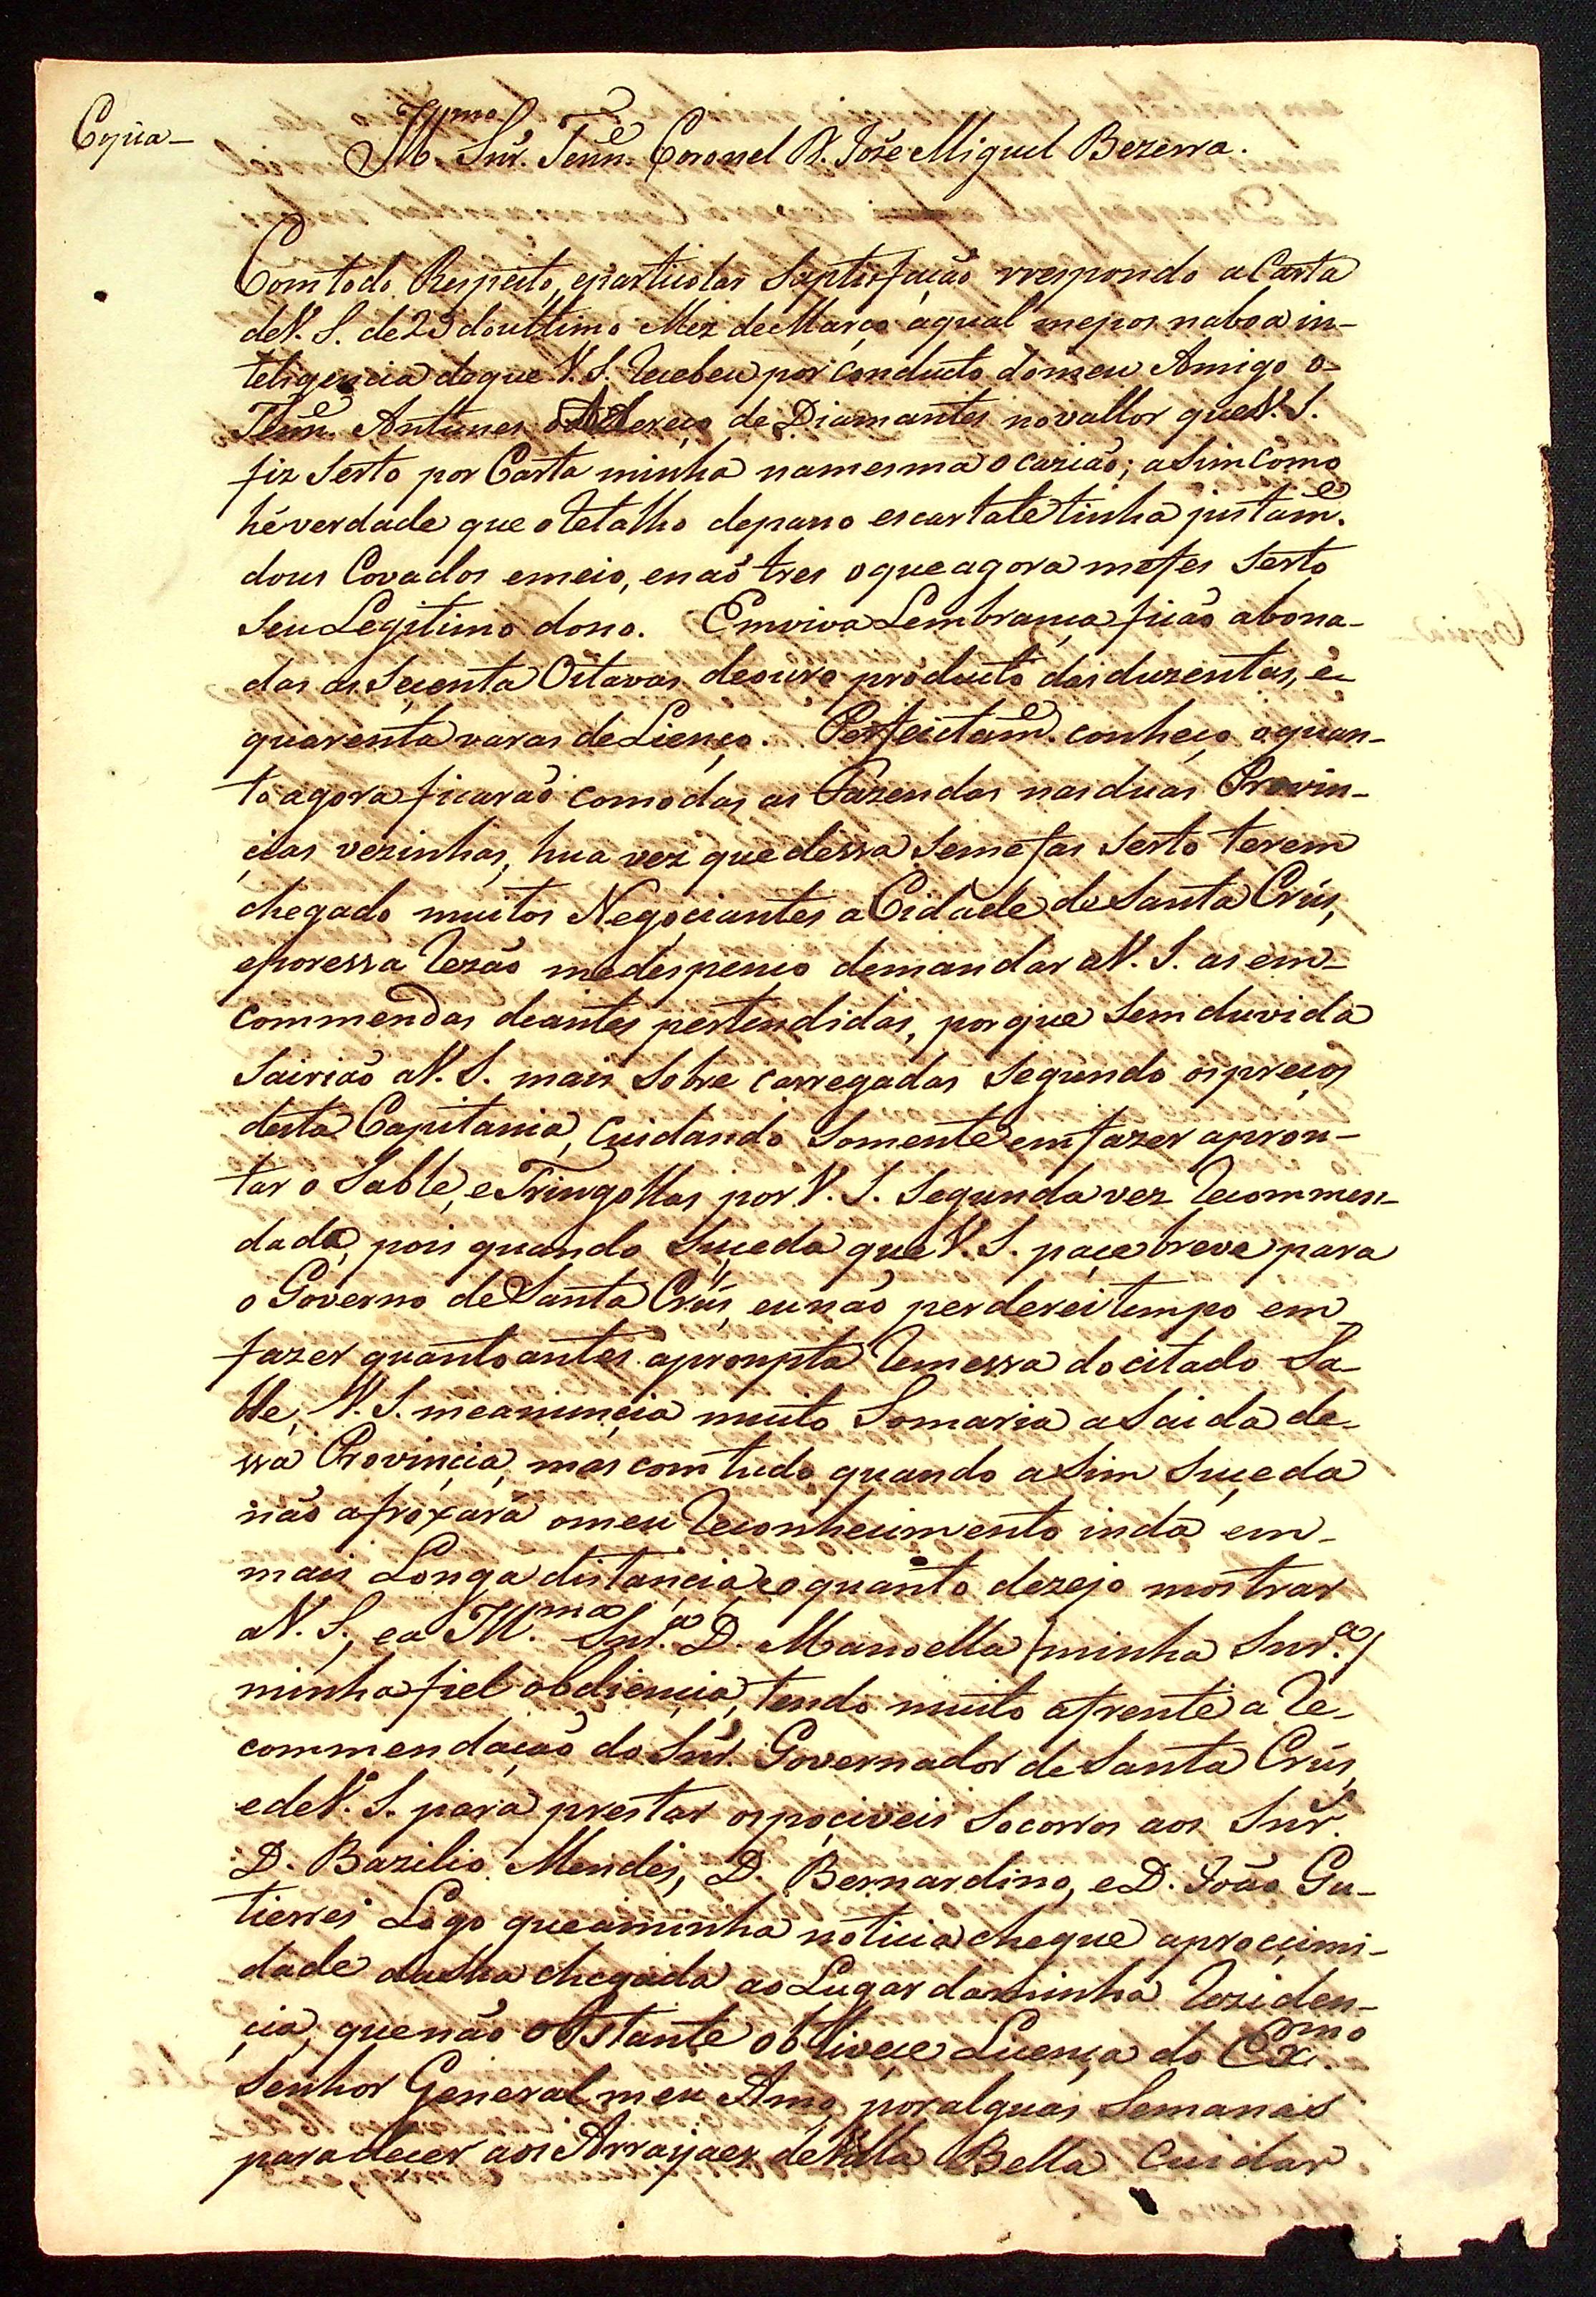 Copia_
Illmo. Snr. Tene. Coronel D. Joze Miguel Bezerra.
Com todo Respeito, eparticolar Saptisfação rrespondo a Carta
deV. S. de 23 doulttimo Mez de Março aqual mepos naboa in-
teligencia deque V. S. recebeu por conducto domeu Amigo o
Tene. Antunes o Adereço de Diamantes novallor queV. S.
fiz Serto por Carta minha namesma ocazião; aSim como
hé verdade que o retalho depano escartate tinha justame.
dous Covados emeio, enaõ tres oqueagora mefes Serto
Seu Legitimo dono. Emviva Lembrança ficão abona-
das as Seçenta Oitavas deouro producto das duzentas, e
quarenta varas de Lienço. Perfeitame. conheço oquan-
to agora ficaraõ comodas as Fazendas nas duas Provin-
çias vezinhas, hua vez que dessa Semefas Serto terem
chegado muitos Negoçiantes a Cidade de Santa Crús,
eporessa rezão medespenço demandar aV. S. as em-
commendas deantes pertendidas, porque Sem duvida
Sairião aV. S. mais Sobre carregadas Segundo ospreços
desta Capitania, Cuidando Somente em fazer apron-
tar o Sable, e Tringollas por V. S. Segunda vez recommen-
dada, pois quando Suçeda queV. S. paçe breve para
o Governo de Santa Crús, eunão perderei tempo em
fazer quanto antes apronpta remessa do citado Sa-
lle, V. S. meanunçia muito Somaria aSaida de-
ssa Provinçia, mas com tudo quando aSim Suçeda
não afroxará omeu reconhecimento inda em
mais Longa distançia, eoquanto dezejo mostrar
aV. S., ea Illma. Snra. D. Manoella (minha Snra.)
minha fiel obdiençia, tendo muito afrente a re-
commendação do Snr. Governador de Santa Crús,
edeV. S. para prestar ospoçiveis Socorros aos Snr.
D. Bazilio Mendes, D. Bernardino, e D. João Gu-
tierres Logo queaminha noticia chegue aproçimi-
dade dasua chegada ao Lugar daminha reziden-
çia, quenão obstante obtiveçe Licença do Exmo.
Senhor General meu Amo, poralguas Semanas
paradecer aos Arrayaes deVilla Bella Cuidar